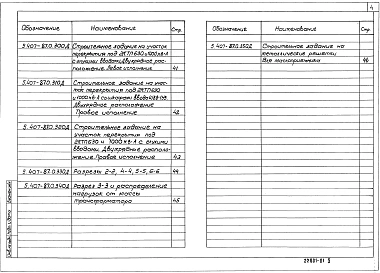 4
Обозначение
Наименование
Стр.
5.407-87.0.300Д
Строительное задание на участок
перекрытия под 2КТП 630 и 1000 кв.А
с глухими вводами. Двухрядное рас-
положение. Левое исполнение
41
5.407-87.0.310Д
Строительное задание на учас-
ток перекрытия под 2КТП 630
и 1000 кв.А с
Двухрядное расположение
Правое исполнение
42
5.407-87.0.320Д
Строительное задание на
участок перекрытия под
2КТП 630 и 1000 кв.А с глухими
вводами. Двухрядное располо-
жение. Правое исполнение
43
5.407-87.0.330Д
Разрезы 2-2, 4-4, 5-5, 6-6
44
5.407-87.0.340Д
Разрез 3-3 и распределение
нагрузок от массы
трансформатора
45
Обозначение
Наименование
Стр.
5.407-87.0.350Д
Строительное задание на
металлические решетки
для маслоприемника
46
22631-01 5